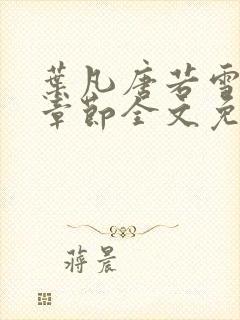 葉凡唐若雪
章節全文免
蔣晨